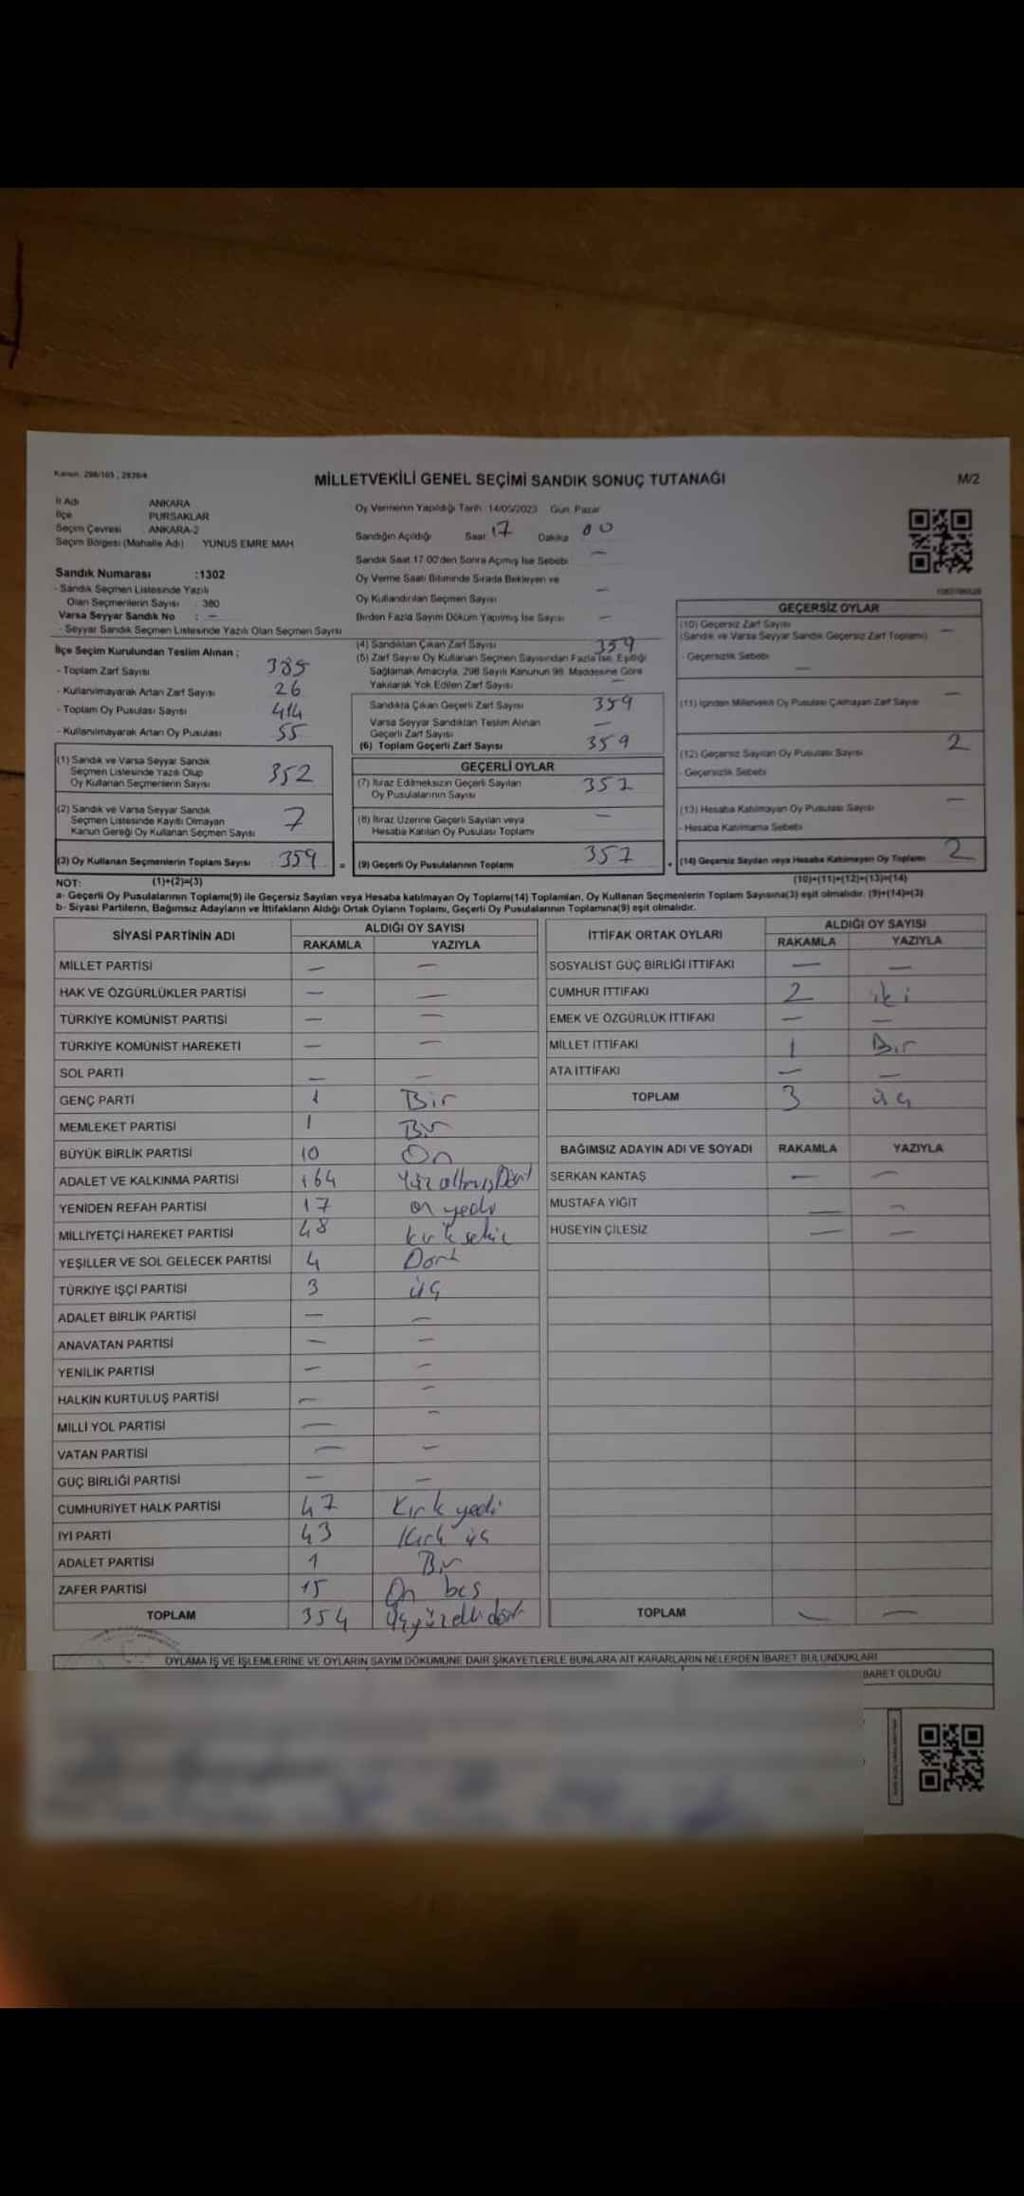 Kanun: 298/105 ; 2839/4
MİLLETVEKİLİ GENEL SEÇİMİ SANDIK SONUÇ TUTANAĞI
M/2
İl Adı ANKARA
İlçe PURSAKLAR
Seçim Çevresi ANKARA-2
Seçim Bölgesi (Mahalle Adı) YUNUS EMRE MAH
Oy Vermenin Yapıldığı Tarih :14/05/2023 Gün: Pazar
Sandığın Açıldığı Saat 17 Dakika 00
Sandık Saat 17.00'den Sonra Açmış İse Sebebi —
Oy Verme Saati Bitiminde Sırada Bekleyen ve
Oy Kullandırılan Seçmen Sayısı —
Birden Fazla Sayım Döküm Yapılmış İse Sayısı —
Sandık Numarası :1302
- Sandık Seçmen Listesinde Yazılı
Olan Seçmenlerin Sayısı : 380
Varsa Seyyar Sandık No : —
- Seyyar Sandık Seçmen Listesinde Yazılı Olan Seçmen Sayısı
İlçe Seçim Kurulundan Teslim Alınan ;
- Toplam Zarf Sayısı 385
- Kullanılmayarak Artan Zarf Sayısı 26
- Toplam Oy Pusulası Sayısı 414
- Kullanılmayarak Artan Oy Pusulası 55
(1) Sandık ve Varsa Seyyar Sandık
Seçmen Listesinde Yazılı Olup
Oy Kullanan Seçmenlerin Sayısı 352
(2) Sandık ve Varsa Seyyar Sandık
Seçmen Listesinde Kayıtlı Olmayan
Kanun Gereği Oy Kullanan Seçmen Sayısı 7
(3) Oy Kullanan Seçmenlerin Toplam Sayısı : 359
(1)+(2)=(3)
(4) Sandıktan Çıkan Zarf Sayısı 359
(5) Zarf Sayısı Oy Kullanan Seçmen Sayısından Fazla İse, Eşitliği
Sağlamak Amacıyla, 298 Sayılı Kanunun 98. Maddesine Göre
Yakılarak Yok Edilen Zarf Sayısı —
Sandıkta Çıkan Geçerli Zarf Sayısı 359
Varsa Seyyar Sandıktan Teslim Alınan
Geçerli Zarf Sayısı —
(6) Toplam Geçerli Zarf Sayısı 359
GEÇERLİ OYLAR
(7) İtiraz Edilmeksizin Geçerli Sayılan
Oy Pusulalarının Sayısı 357
(8) İtiraz Üzerine Geçerli Sayılan veya
Hesaba Katılan Oy Pusulası Toplamı —
= (9) Geçerli Oy Pusulalarının Toplamı 357
GEÇERSİZ OYLAR
(10) Geçersiz Zarf Sayısı —
(Sandık ve Varsa Seyyar Sandık Geçersiz Zarf Toplamı)
- Geçersizlik Sebebi —
(11) İçinden Milletvekili Oy Pusulası Çıkmayan Zarf Sayısı —
(12) Geçersiz Sayılan Oy Pusulası Sayısı 2
- Geçersizlik Sebebi
(13) Hesaba Katılmayan Oy Pusulası Sayısı —
- Hesaba Katılmama Sebebi
+ (14) Geçersiz Sayılan veya Hesaba Katılmayan Oy Toplamı 2
(10)+(11)+(12)+(13)=(14)
NOT:
a- Geçerli Oy Pusulalarının Toplamı(9) ile Geçersiz Sayılan veya Hesaba katılmayan Oy Toplamı(14) Toplamları, Oy Kullanan Seçmenlerin Toplam Sayısına(3) eşit olmalıdır. (9)+(14)=(3)
b- Siyasi Partilerin, Bağımsız Adayların ve İttifakların Aldığı Ortak Oyların Toplamı, Geçerli Oy Pusulalarının Toplamına(9) eşit olmalıdır.
SİYASİ PARTİNİN ADI ALDIĞI OY SAYISI
RAKAMLA YAZIYLA
MİLLET PARTİSİ — —
HAK VE ÖZGÜRLÜKLER PARTİSİ — —
TÜRKİYE KOMÜNİST PARTİSİ — —
TÜRKİYE KOMÜNİST HAREKETİ — —
SOL PARTİ — —
GENÇ PARTİ 1 Bir
MEMLEKET PARTİSİ 1 Bir
BÜYÜK BİRLİK PARTİSİ 10 On
ADALET VE KALKINMA PARTİSİ 164 Yüz altmış Dört
YENİDEN REFAH PARTİSİ 17 on yedi
MİLLİYETÇİ HAREKET PARTİSİ 48 kırk sekiz
YEŞİLLER VE SOL GELECEK PARTİSİ 4 Dört
TÜRKİYE İŞÇİ PARTİSİ 3 üç
ADALET BİRLİK PARTİSİ — —
ANAVATAN PARTİSİ — —
YENİLİK PARTİSİ — —
HALKIN KURTULUŞ PARTİSİ — —
MİLLİ YOL PARTİSİ — —
VATAN PARTİSİ — —
GÜÇ BİRLİĞİ PARTİSİ — —
CUMHURİYET HALK PARTİSİ 47 Kırk yedi
İYİ PARTİ 43 Kırk üç
ADALET PARTİSİ 1 Bir
ZAFER PARTİSİ 15 On beş
TOPLAM 354 Üçyüzellidört
İTTİFAK ORTAK OYLARI ALDIĞI OY SAYISI
RAKAMLA YAZIYLA
SOSYALİST GÜÇ BİRLİĞİ İTTİFAKI — —
CUMHUR İTTİFAKI 2 iki
EMEK VE ÖZGÜRLÜK İTTİFAKI — —
MİLLET İTTİFAKI 1 Bir
ATA İTTİFAKI — —
TOPLAM 3 üç
BAĞIMSIZ ADAYIN ADI VE SOYADI RAKAMLA YAZIYLA
SERKAN KANTAŞ — —
MUSTAFA YİĞİT — —
HÜSEYİN ÇİLESİZ — —
TOPLAM — —
OYLAMA İŞ VE İŞLEMLERİNE VE OYLARIN SAYIM DÖKÜMÜNE DAİR ŞİKAYETLERLE BUNLARA AİT KARARLARIN NELERDEN İBARET BULUNDUKLARI
BARET OLDUĞU